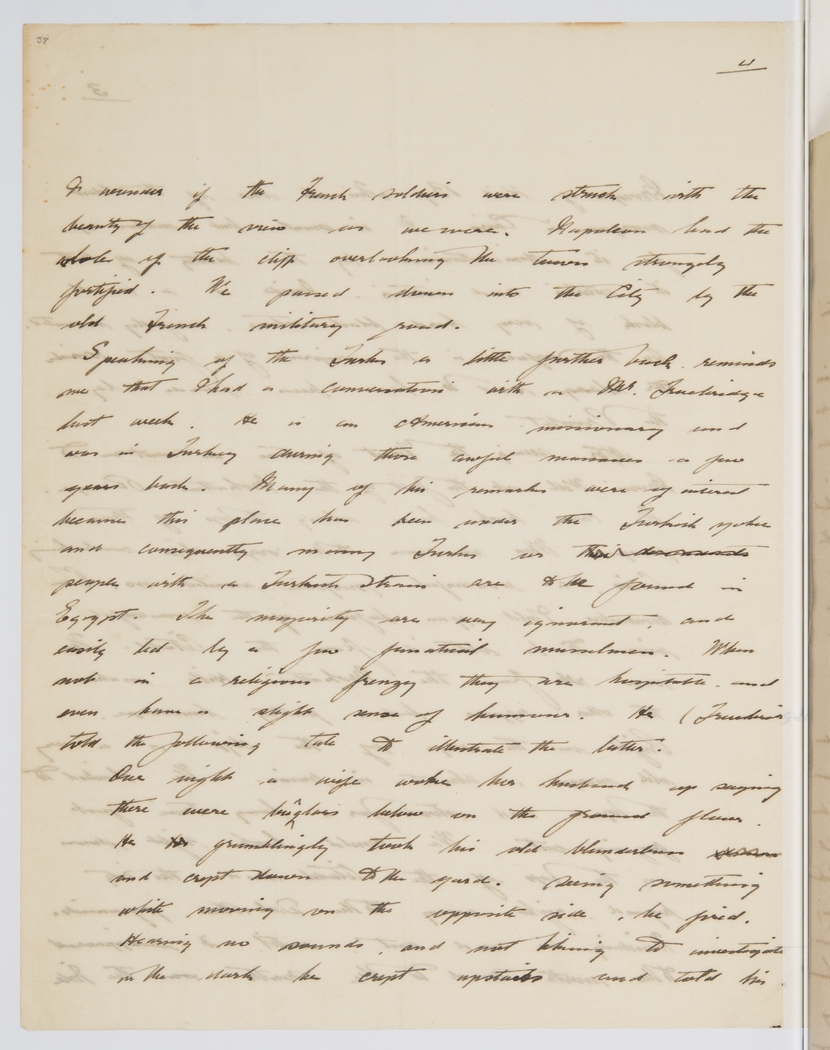 4
I wonder if the French soldiers were struck with the
beauty of the view as we were. Napoleon had the
whole of the cliff overlooking the town strongly
fortified. We passed down into the City by the
old French military road.
Speaking of the Turks a little further back reminds
me that I had a conversation with a Mr. Trowbridge
last week. He is an American missionary and
was in Turkey during those awful massacres a few
years back. Many of his remarks were of interest
because this place has been under the Turkish yoke
and consequently many Turks or their descendants
people with a Turkish strain are to be found in
Egypt. The majority are very ignorant, and
easily led by a few fanatical mussulmen. When
not in a religious frenzy they are hospitable and
even have a slight sense of humour. He (
told the following tale to illustrate the latter.
One night a wife woke her husband up saying
there were burglars below on the ground floor.
He grumblingly took his old blunderbuss
and crept down to the yard. Seeing something
white moving on the opposite side, he fired.
Hearing no sounds, and not liking to investigate
in the dark he crept upstairs and told his